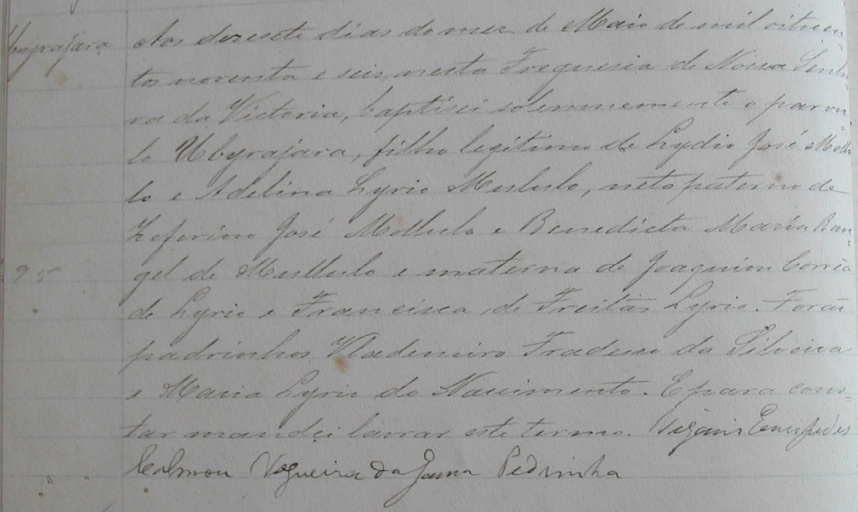 Ubyrajara
Aos desesete dias do mez de Maio de mil oitocen-
tos noventa e seis, nesta Freguesia de Nossa Senho-
ra da Victoria, baptisei solemnemente o parvu-
lo Ubyrajara, filho legitimo de Lydio José Mullu-
lo e Adelina Lyrio Mululo, neto paterno de
Zeferino José Mullulo e Benedicta Maria Ran-
gel de Mullulo e materna de Joaquim Corrêa
de Lyrio e Francisca de Freitas Lyrio. Forão
padrinhos Vlademiro Fradesso da Silveira
e Maria Lyrio do Nascimento. E para cons-
tar mandei lavrar este termo. Vigario
Calmon Nogueira da Gama Pedrinha